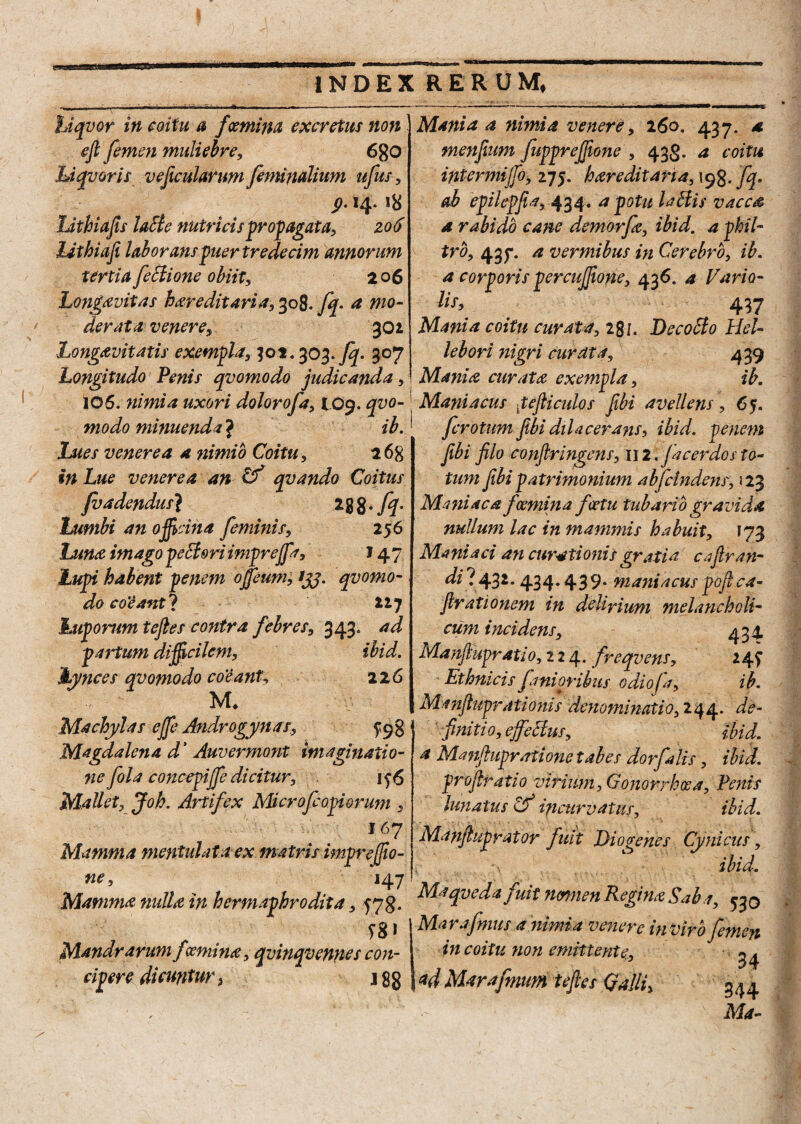 INDEX RERUM,
Liqvor in coitu a fœmina excretus non
eſt ſemen muliebre, 680
Liqvoris veſicularum ſeminalium uſus,
p. 14. 18
Lithiaſis lacte nutricis propagata, 206
Lithiaſi laborans puer tredecim annorum
tertia ſectione obiit, 206
Longævitas hæreditaria, 308. ſq. a mo-
derata venere, 302
Longævitatis exempla, 302. 303. ſq. 307
Longitudo Penis qvomodo judicanda,
106. nimia uxori doloroſa, 109. qvo-
modo minuenda? ib.
Lues venerea a nimiò Coitu, 268
in Lue venerea an & qvando Coitus
ſvadendus? 288. ſq.
Lumbi an officina ſeminis, 256
Lunæ imago pectori impreſſa, 147
Lupi habent penem oſſeum, 133. qvomo-
do coëant? 227
Luporum teſtes contra febres, 343. ad
partum difficilem, ibid.
Lynces qvomodo coëant, 226
M.
Machylas eſſe Androgynas, 598
Magdalena d' Auvermont imaginatio-
ne ſola concepiſſe dicitur, 156
Mallet, Joh. Artifex Microſcopiorum,
167
Mamma mentulata ex matris impreſſio-
ne, 147
Mammæ nullæ in hermaphrodita, 578.
581
Mandrarum fœminæ, qvinqvennes con-
cipere dicuntur, 188
Mania a nimia venere, 260. 437. a
menſium ſuppreſſione, 438. a coitu
intermiſſo, 275. hæreditaria, 198. ſq.
ab epilepſia, 434. a potu lactis vaccæ
a rabidò cane demorſæ, ibid. a phil-
trò, 435. a vermibus in Cerebrò, ib.
a corporis percuſſione, 436. a Vario-
lis, 437
Mania coitu curata, 281. Decocto Hel-
lebori nigri curata, 439
Maniæ curatæ exempla, ib.
Maniacus teſticulos ſibi avellens, 65.
ſcrotum ſibi dilacerans, ibid. penem
ſibi filo conſtringens, 112. ſacerdos to-
tum ſibi patrimonium abſcindens, 123
Maniaca fœmina fœtu tubariò gravida
nullum lac in mammis habuit, 173
Maniaci an curationis gratia caſtran-
di? 432. 434. 439. maniacus poſt ca-
ſtrationem in delirium melancholi-
cum incidens, 434
Manſtupratio, 224. freqvens, 245
Ethnicis ſanioribus odioſa, ib.
Manſtuprationis denominatio, 244. de-
finitio, effectus, ibid.
a Manſtupratione tabes dorſalis, ibid.
proſtratio virium, Gonorrhœa, Penis
lunatus & incurvatus, ibid.
Manſtuprator fuit Diogenes Cynicus,
ibid.
Maqveda fuit nomen Reginæ Saba, 530
Maraſmus a nimia venere in virò ſemen
in coitu non emittente, 34
ad Maraſmum teſtes Galli, 344
Ma-